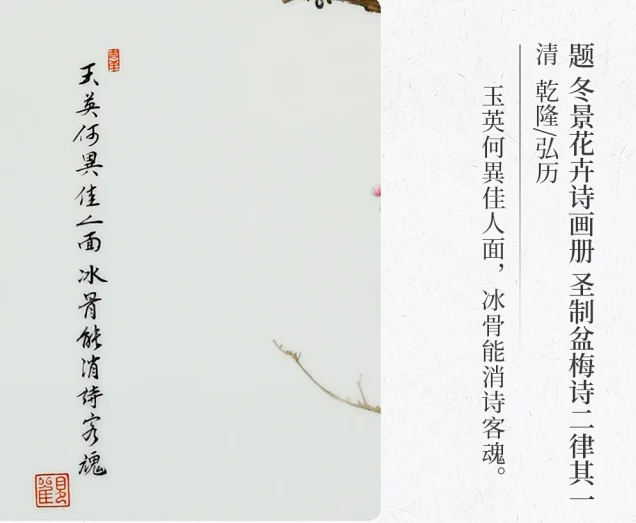 题 冬景花卉诗画册 圣制盆梅诗二律其一
清 乾隆/弘历
玉英何異佳人面，冰骨能消诗客魂。
玉英何異佳人面冰骨能消詩客魂